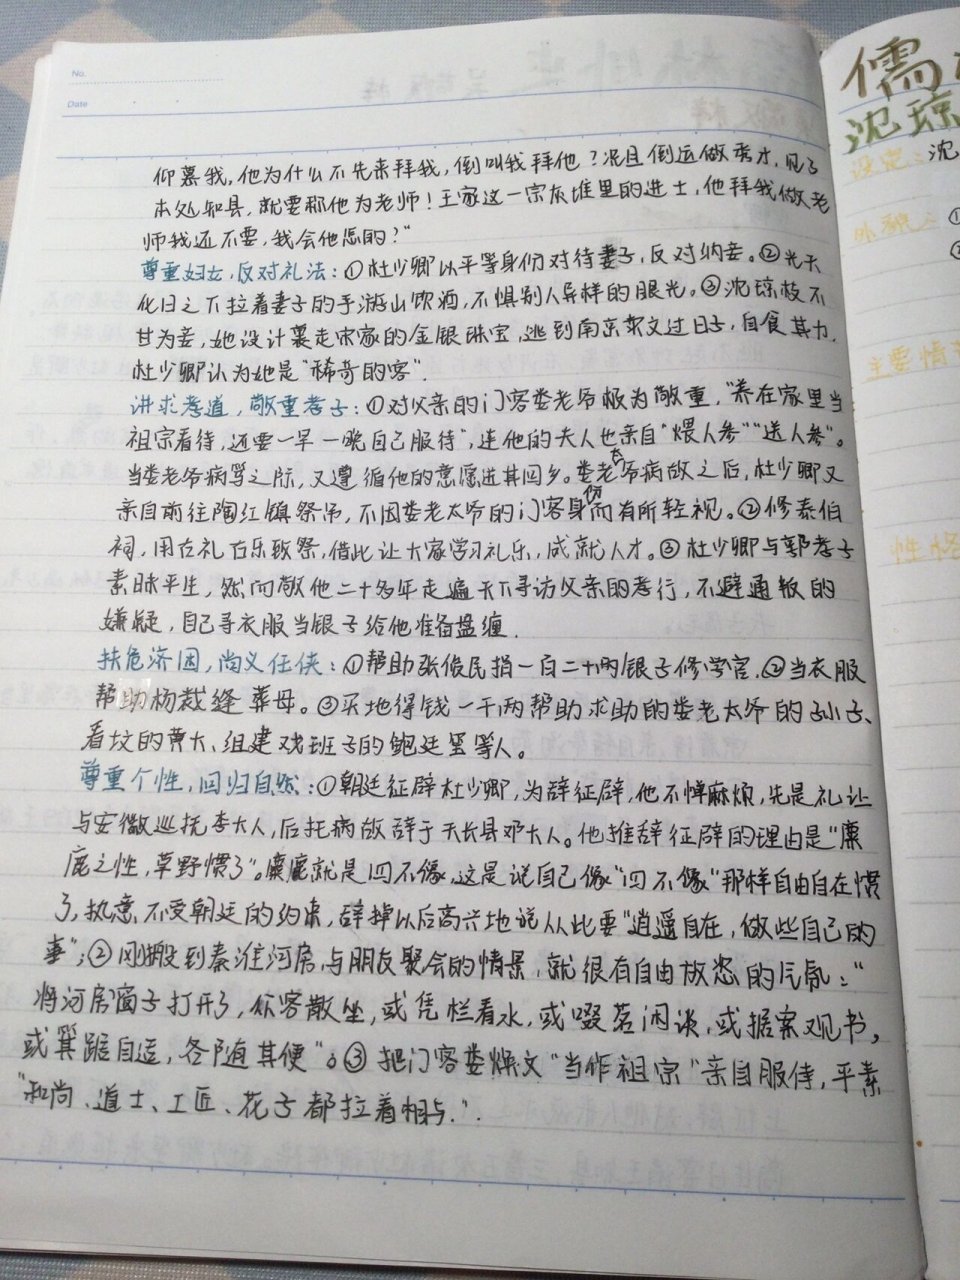 No.
Date
仰慕我,他为什么不先来拜我,倒叫我拜他?况且倒运做秀才,见了
本处知县,就要称他为老师!王家这一宗灰堆里的进士,他拜我做老
师我还不要,我会他怎的?"
尊重妇女,反对礼法:①杜少卿以平等身份对待妻子,反对纳妾。②光天
化日之下拉着妻子的手游山饮酒,不惧别人异样的眼光。③沈琼枝不
甘为妾,她设计裹走宋家的金银珠宝,逃到南京卖文过日子,自食其力.
杜少卿认为她是"稀奇的客".
讲求孝道,敬重孝子:①对父亲的门客娄老爷极为敬重,"养在家里当
祖宗看待,还要一早一晚自己服待",连他的夫人也亲自"煨人参""送人参"。
当娄老爷病笃之际,又遵循他的意愿送其回乡。娄老太爷病故之后,杜少卿又
亲自前往陶红镇祭吊,不因娄老太爷的门客身份而有所轻视。②修泰伯
祠,用古礼古乐致祭,借此让大家学习礼乐,成就人才。③杜少卿与郭孝子
素昧平生,然而敬他二十多年走遍天下寻访父亲的孝行,不避通叛的
嫌疑,自己寻衣服当银子给他准备盘缠.
扶危济困,尚义任侠:①帮助张俊民捐一百二十两银子修学宫.②当衣服
帮助杨裁缝葬母。③买地得钱一千两帮助求助的娄老太爷的孙子、
看坟的黄大、组建戏班子的鲍廷玺等人。
尊重个性,回归自然:①朝廷征辟杜少卿,为辞征辟,他不惮麻烦,先是礼让
与安徽巡抚李大人,后托病故辞于天长县邓大人。他推辞征辟的理由是"麋
鹿之性,草野惯了"。麋鹿就是四不像,这是说自己像"四不像"那样自由自在惯
了,执意不受朝廷的约束,辞掉以后高兴地说从此要"逍遥自在,做些自己的
事";②刚搬到秦淮河房,与朋友聚会的情景,就很有自由放恣的气氛:"
将河房窗子打开了,众客散坐,或凭栏看水,或啜茗闲谈,或据案观书,
或箕踞自适,各随其便"。③把门客娄焕文"当作祖宗"亲自服侍,平素
"和尚、道士、工匠、花子都拉着相与.".
儒
沈琼
设定:沈
外貌:①
主要情节
性格